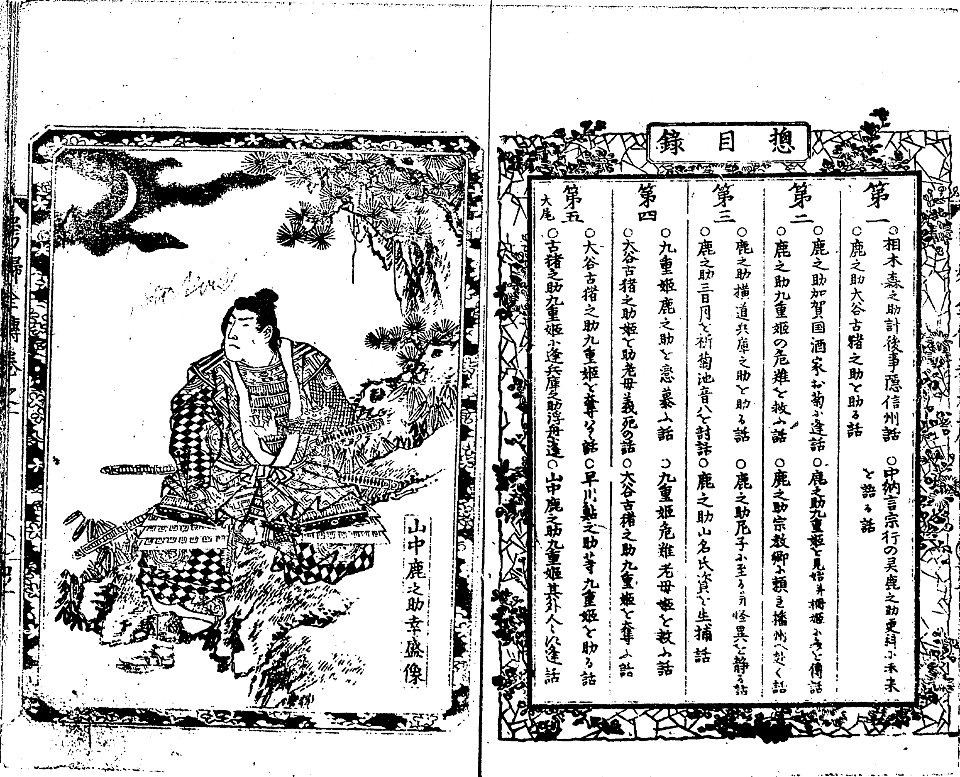 摠目録
第一
○相木森之助計後事隠信州話
○中納言宗行の灵鹿之助更科小未来
を語る話
○鹿之助大谷古猪之助を助る話
第二
○鹿之助加賀国酒家お菊に逢話
○鹿之助九重姫を見始
○鹿之助九重姫の危難を救ふ話
○鹿之助宗教卿に頼き播州へ赴く話
第三
鹿之助横道兵庫之助を助る話
○鹿之助尼子に至る
怪異を静る話
○鹿之助三日月を祈菊池音八を討話
○鹿之助山名氏資を生捕話
第四
○九重姫鹿之助を恋慕ふ話
○九重姫危難老母姫を救ふ話
○大谷古猪之助姫を助老母義死の話
○大谷古猪之助九重姫を奪ふ話
第五
大尾
○大谷古猪之助九重姫を奪
話
○早川鮎之助等九重姫を助る話
○古猪之助九重姫に逢兵庫之助
○山中鹿之助九重姫其外人々に逢話
山中鹿之助幸盛像